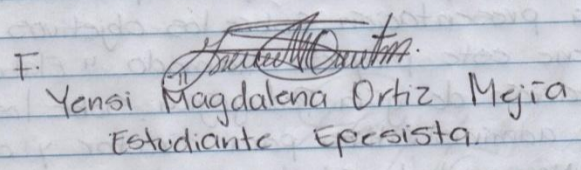 F.
Yensi Magdalena Ortiz Mejía
Estudiante Epesista.